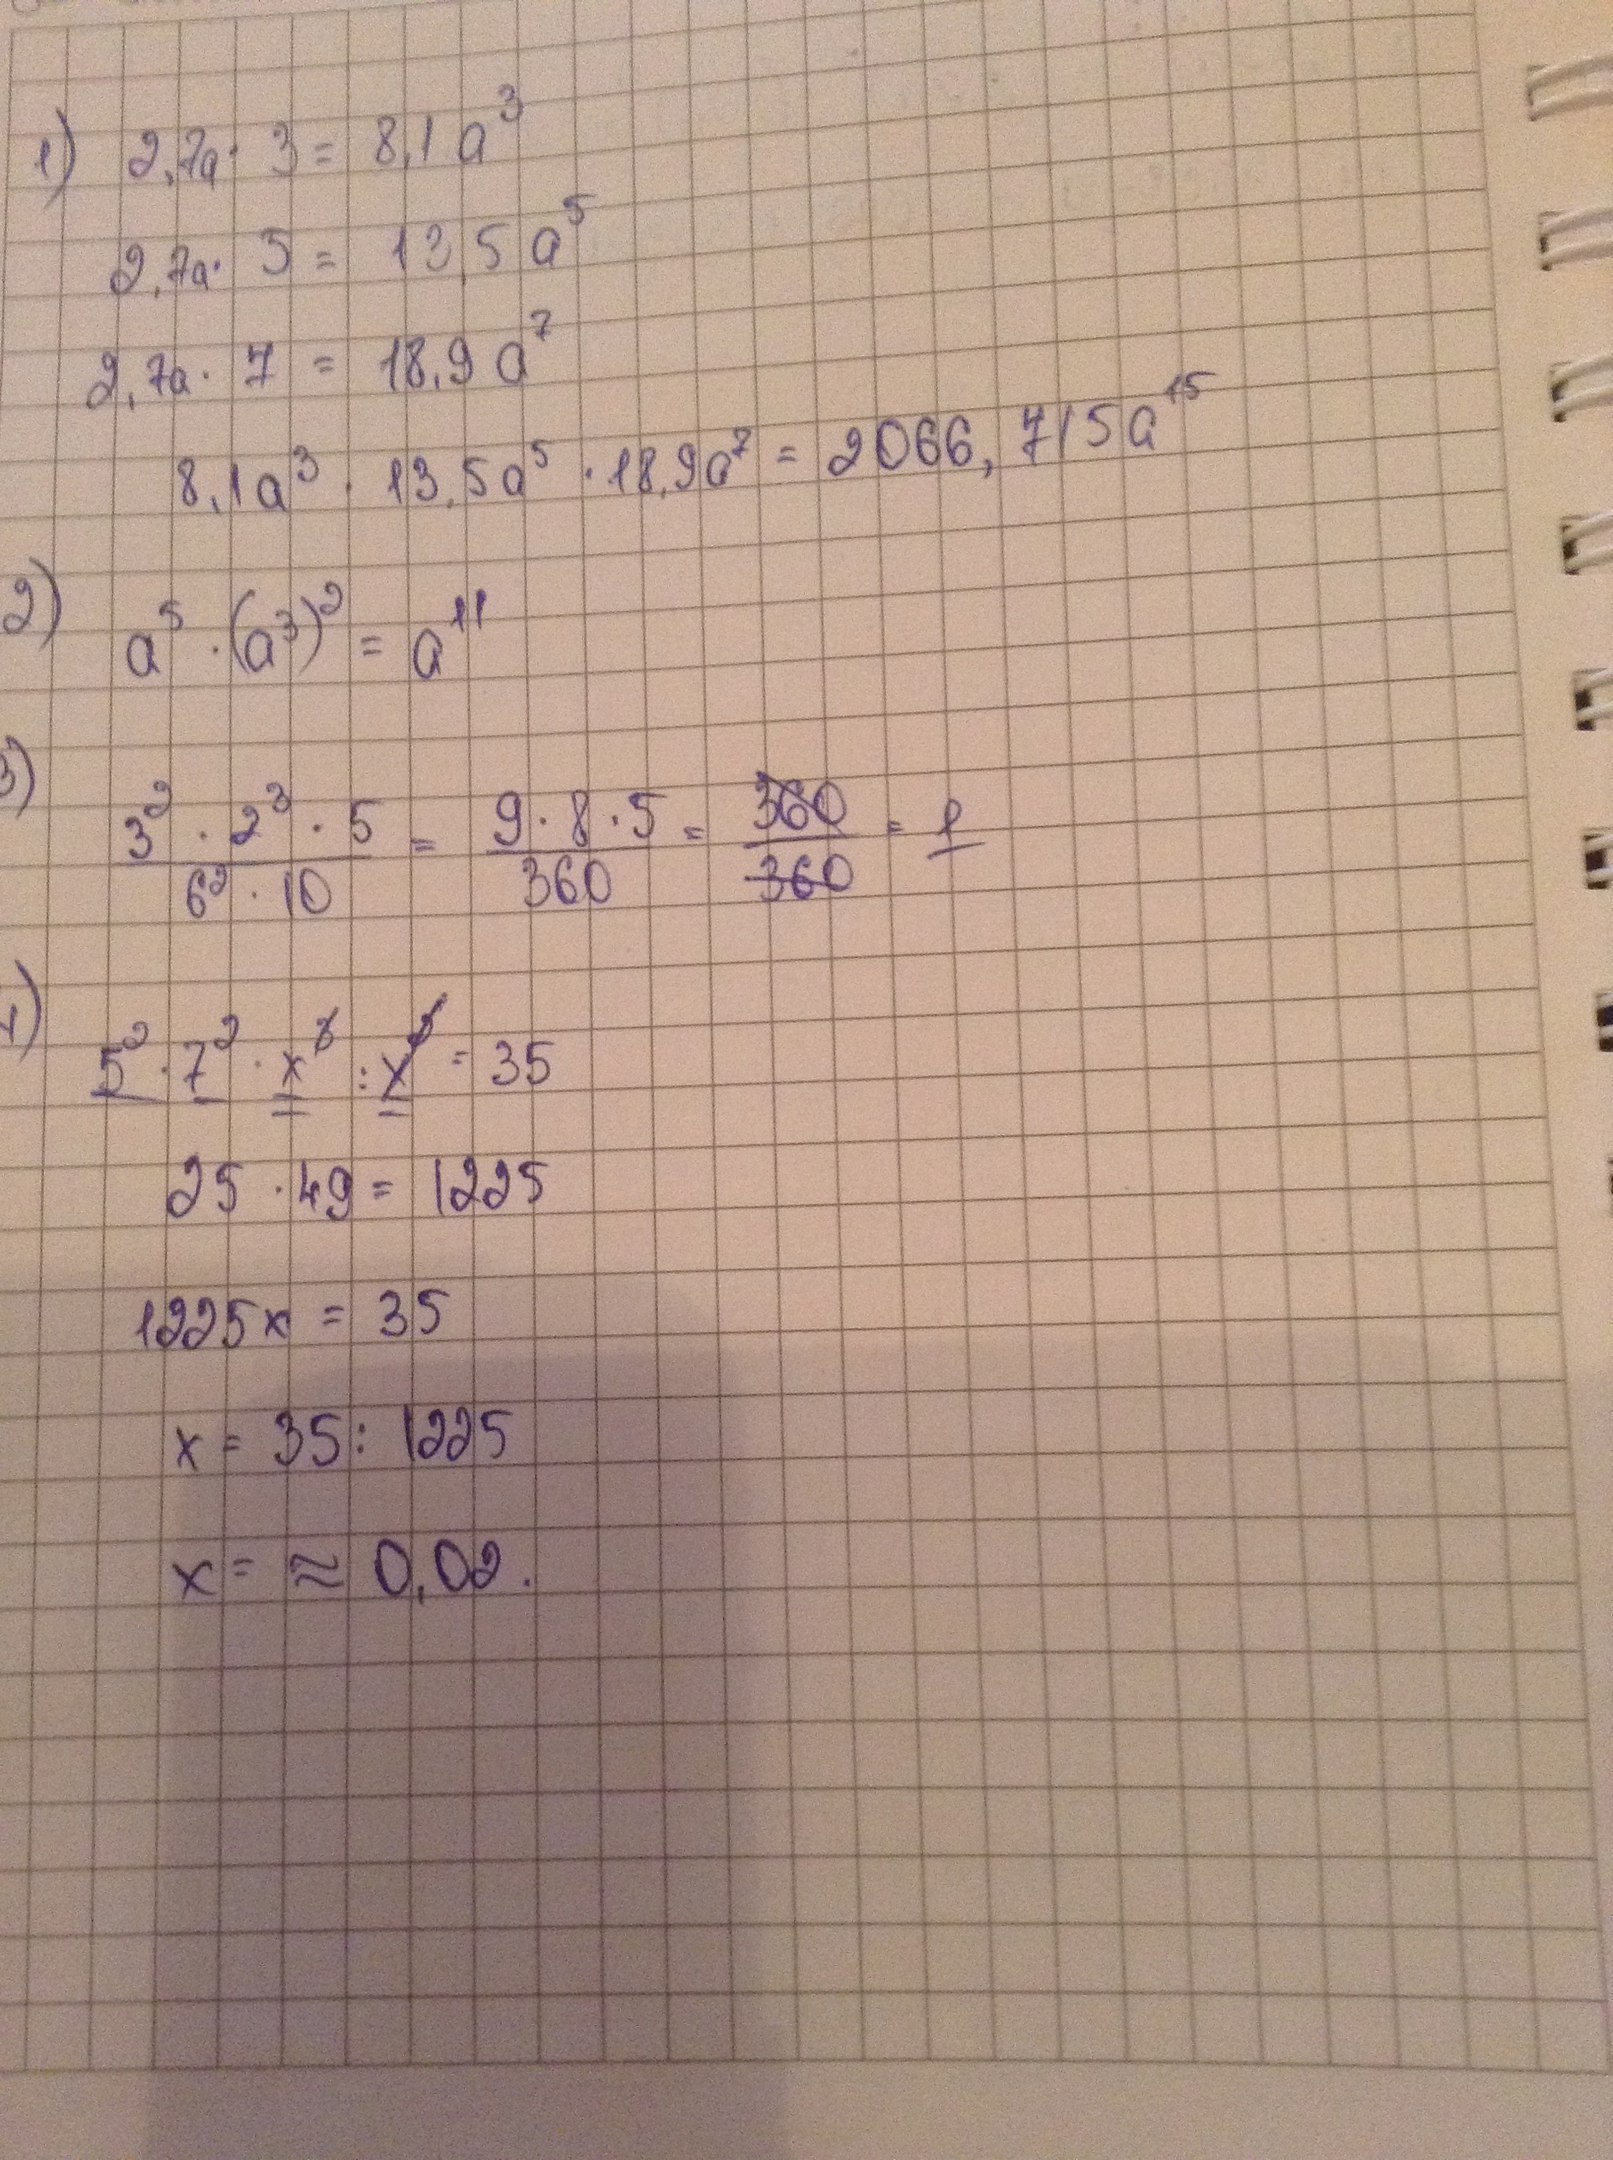 1) 2,7a · 3 = 8,1a³
2,7a · 5 = 13,5a⁵
2,7a · 7 = 18,9a⁷
8,1a³ · 13,5a⁵ · 18,9a⁷ = 2066,715a¹⁵
2) a⁵ · (a³)² = a¹¹
3) 3² · 2³ · 5 / 6² · 10 = 9 · 8 · 5 / 360 = 360 / 360 = 1
5² · 7² · x : x = 35
25 · 49 = 1225
1225x = 35
x = 35 : 1225
x = ≈ 0,02.